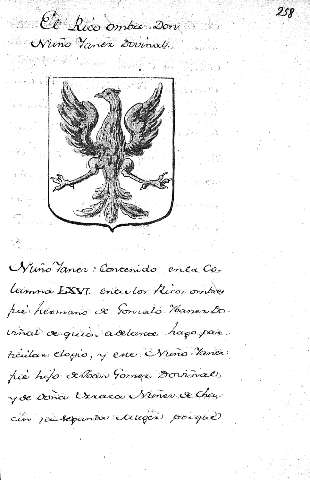 258
El Rico ombre Don
Nuño Yanez Doviñal.
Nuño Yanez: Contenido en la Co-
lumna LXVI entre los Ricos ombres
fué hermano de Gonzalo Ibanez Do
viñal de quien adelante hago par-
ticular elogio, y este Nuño Yanez
fué hijo de Juan Gomez Doviñal,
y de Doña Urraca Nuñez de
cin su segunda Muger porque